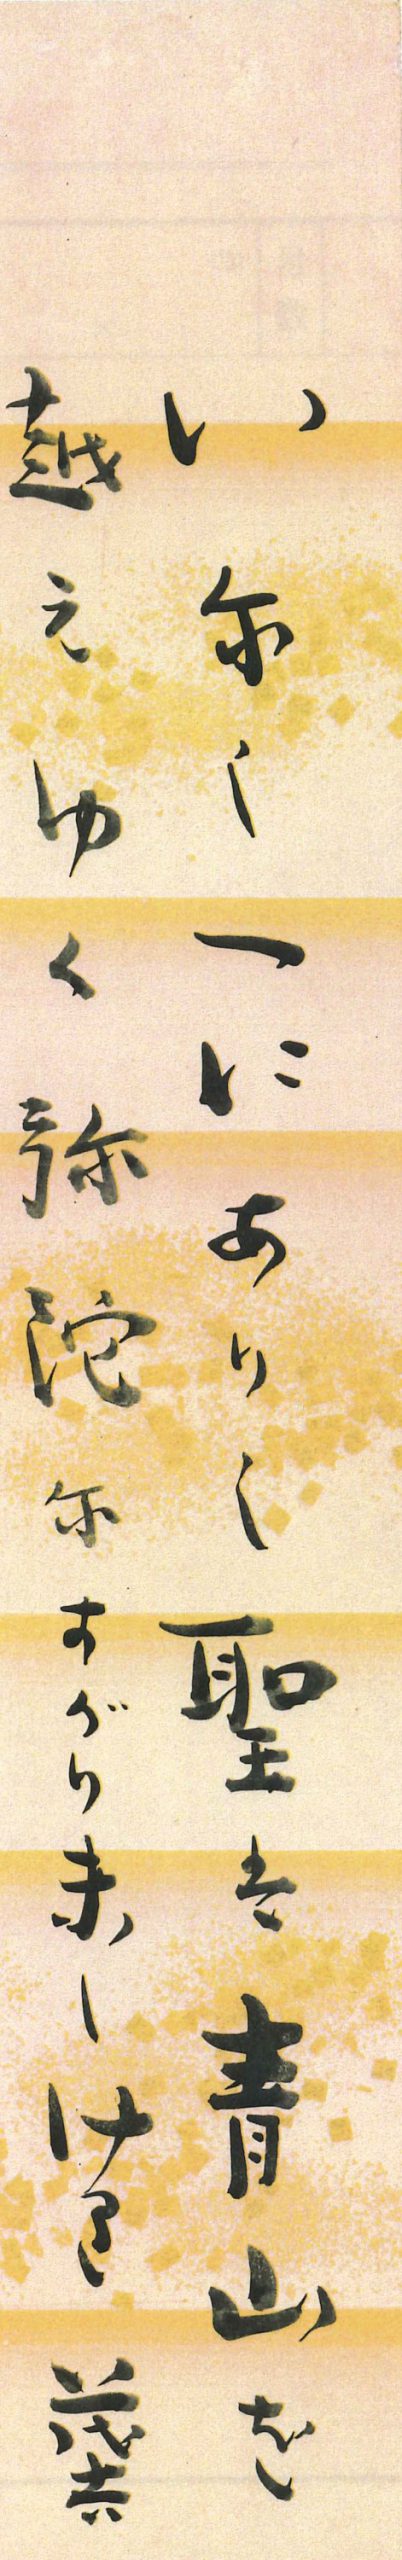 いにしへにありし聖は青山を
越えゆく弥陀にすがりましけり 茂吉